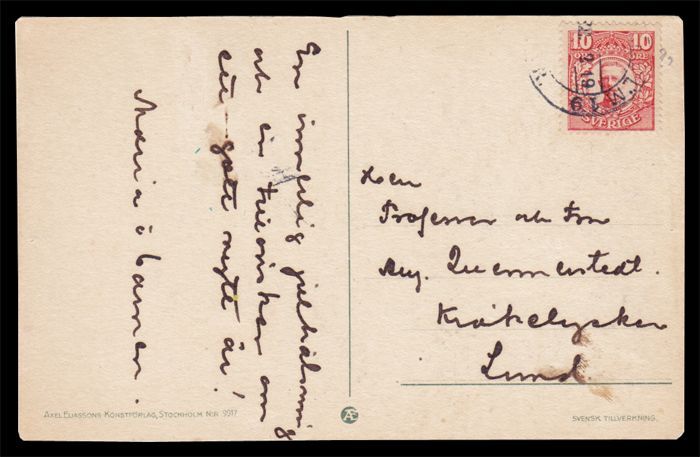 En innerlig julhälsning
och en tillönskan om
ett gott nytt år!
Maria o barnen.
10 10
ÖRE
SVERIGE
22. 2. 19
Herr
Professor och Fru
Aug. Quennerstedt.
Kråkelyckan
Lund.
AXEL ELIASSONS KONSTFÖRLAG, STOCKHOLM. N:R 9917
Æ
SVENSK TILLVERKNING.